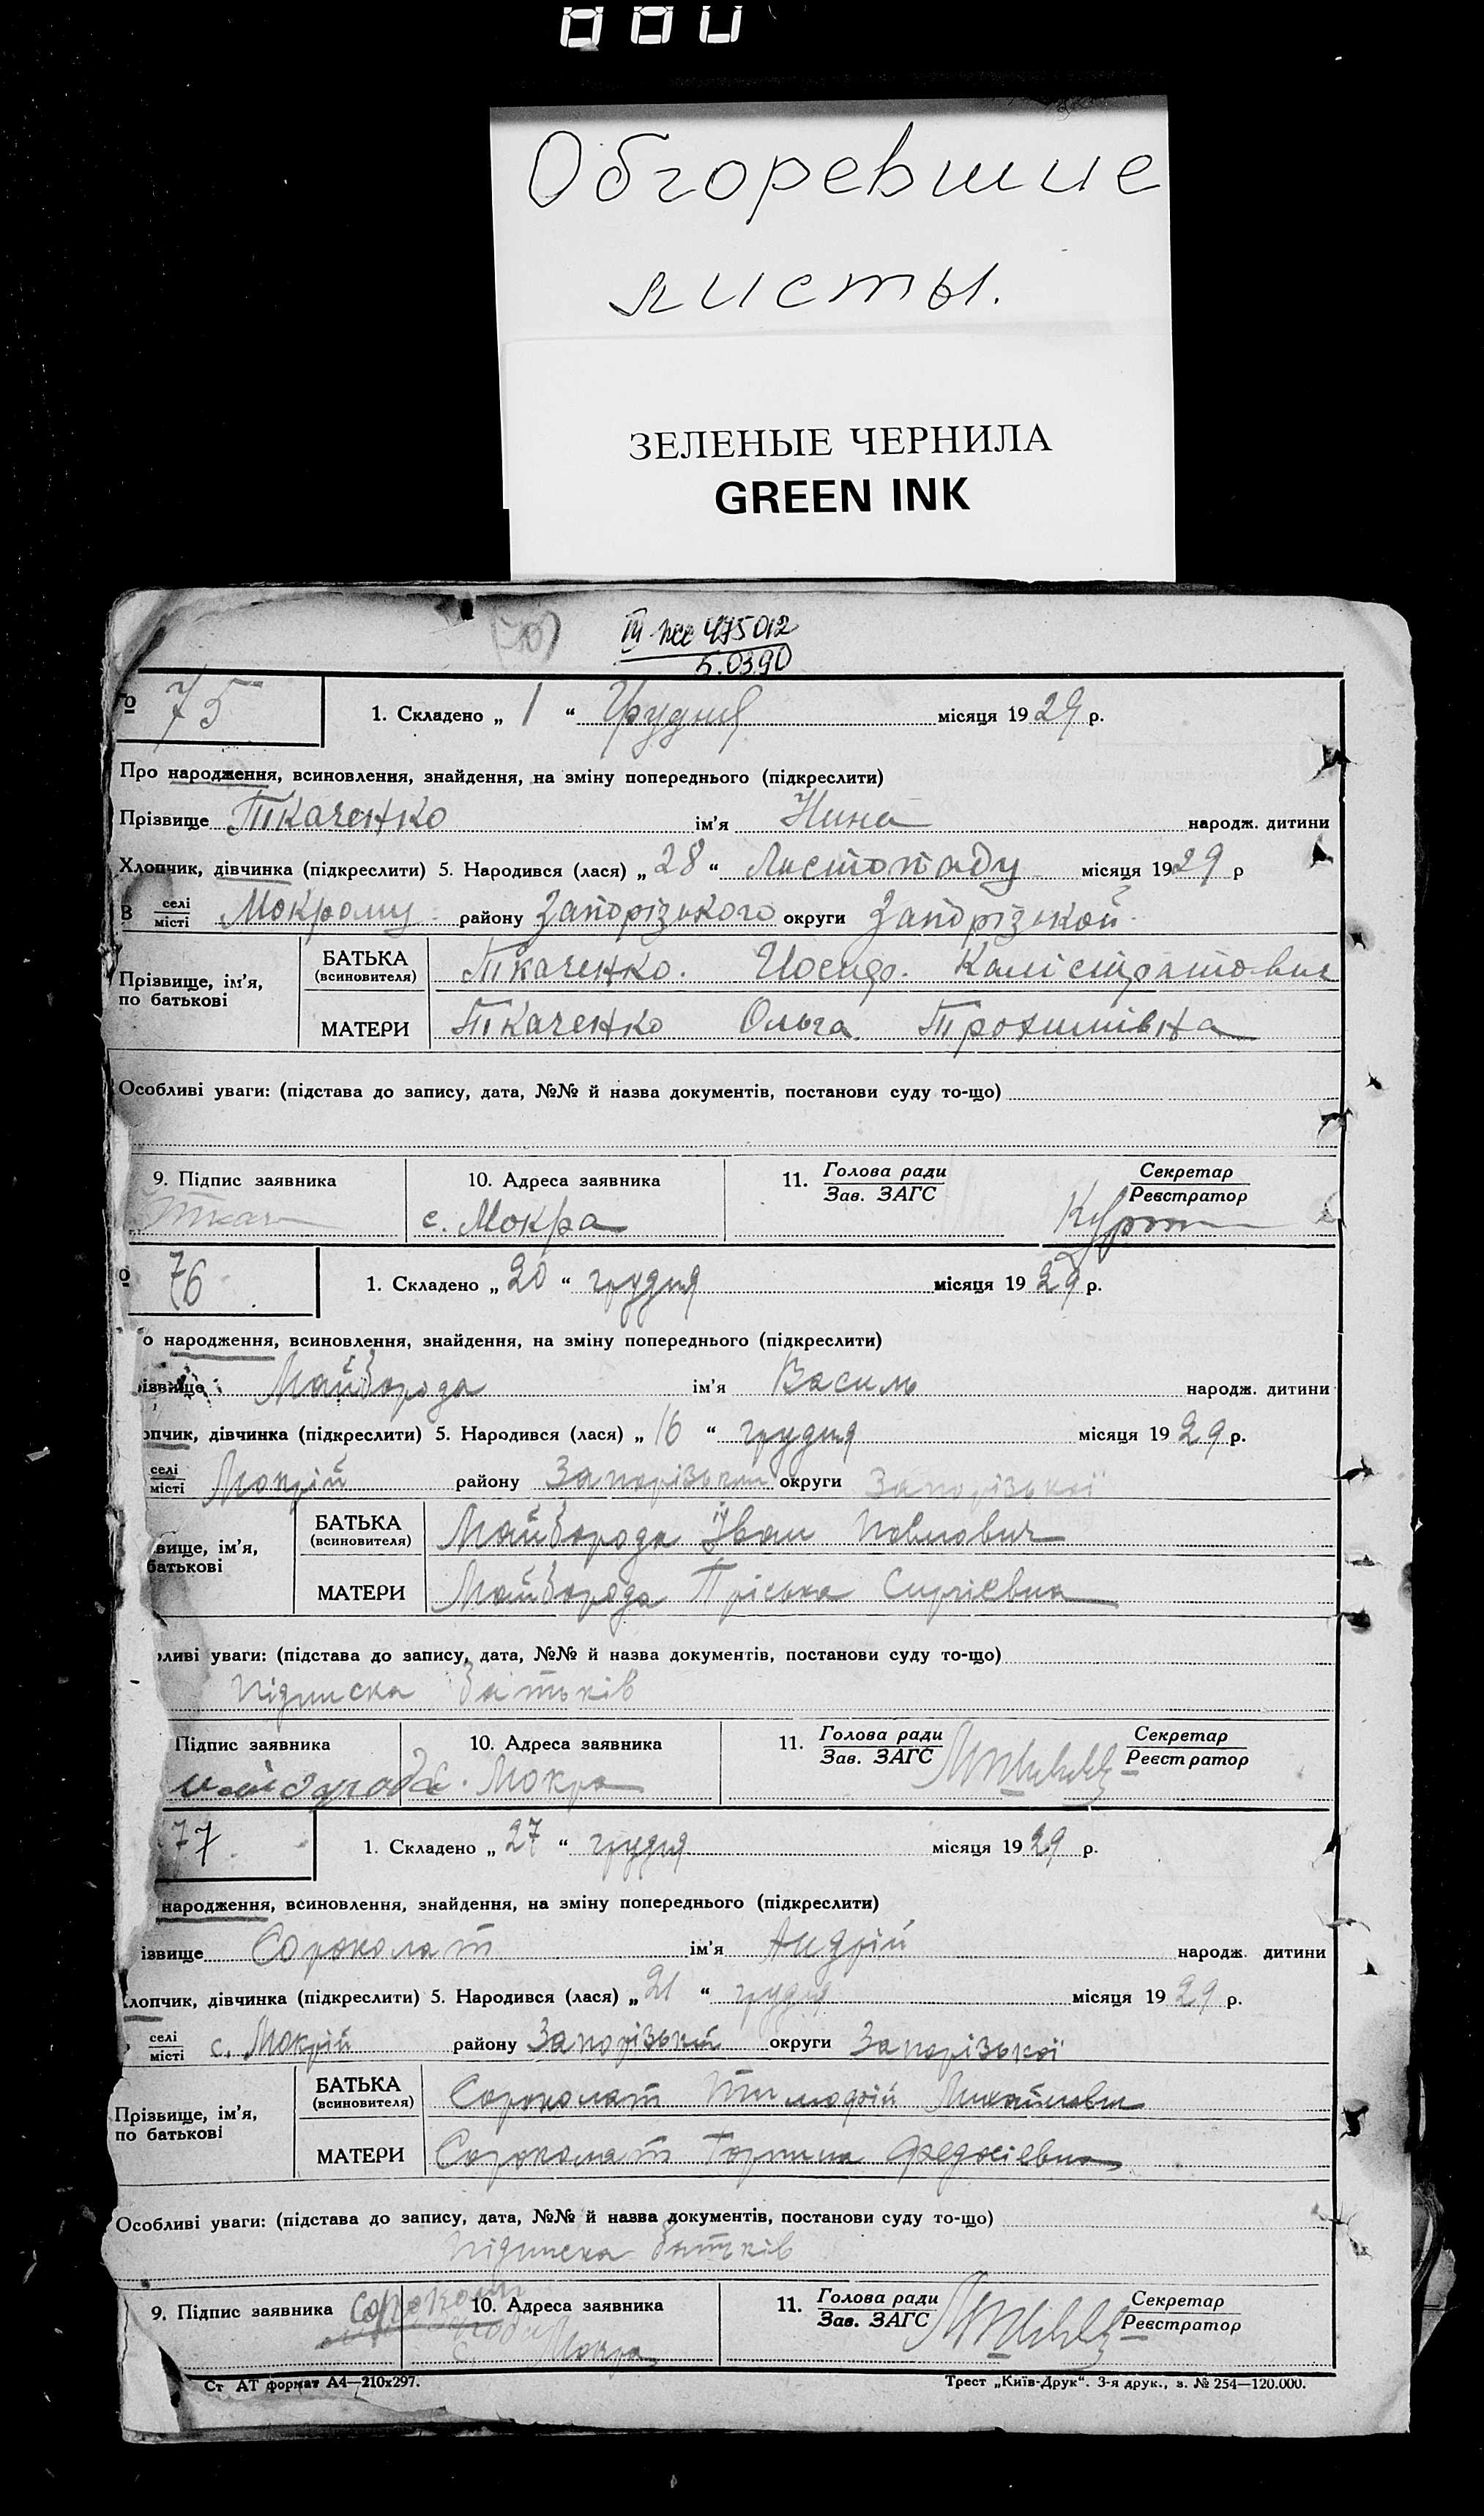 000
Обгоревшие
листы.
ЗЕЛЕНЫЕ ЧЕРНИЛА
GREEN INK
(70)
III ЖС 475012
5.03.90
№ 75
1. Складено „ 1 “ Грудня місяця 1929 р.
Про народження, всиновлення, знайдення, на зміну попереднього (підкреслити)
Прізвище Ткаченко ім’я Нина народж. дитини
Хлопчик, дівчинка (підкреслити) 5. Народився (лася) „ 28 “ Листопаду місяця 1929 р
В селі/місті Мокрому району Запорізького округи Запорізькой
Прізвище, ім’я, по батькові
БАТЬКА (всиновителя) Ткаченко. Иосиф. Калістратович
МАТЕРИ Ткаченко Ольга Трохимівна
Особливі уваги: (підстава до запису, дата, №№ й назва документів, постанови суду то-що)
9. Підпис заявника 10. Адреса заявника 11. Голова ради/Зав. ЗАГС Секретар/Реєстратор
Ткач с. Мокра
76
1. Складено „ 20 “ грудня місяця 1929 р.
о народження, всиновлення, знайдення, на зміну попереднього (підкреслити)
ізвище Майборода ім’я Василь народж. дитини
опчик, дівчинка (підкреслити) 5. Народився (лася) „ 16 “ грудня місяця 1929 р.
селі/місті Мокрій району Запорізьким округи Запорізької
вище, ім’я, батькові
БАТЬКА (всиновителя) Майборода Іван Павлович
МАТЕРИ Майборода Пріська Сиргієвна
ливі уваги: (підстава до запису, дата, №№ й назва документів, постанови суду то-що)
Підписка батьків
Підпис заявника 10. Адреса заявника 11. Голова ради/Зав. ЗАГС Секретар/Реєстратор
майборода с. Мокра
77
1. Складено „ 27 “ грудня місяця 1929 р.
народження, всиновлення, знайдення, на зміну попереднього (підкреслити)
ізвище Сороколат ім’я Андрій народж. дитини
лопчик, дівчинка (підкреслити) 5. Народився (лася) „ 21 “ грудня місяця 1929 р.
селі/місті с. Мокрій району Запорізькій округи Запорізької
Прізвище, ім’я, по батькові
БАТЬКА (всиновителя) Сороколат Тимофій Михайлович
МАТЕРИ Сороколат Горпина Федосіевна
Особливі уваги: (підстава до запису, дата, №№ й назва документів, постанови суду то-що)
Підписка батьків
9. Підпис заявника 10. Адреса заявника 11. Голова ради/Зав. ЗАГС Секретар/Реєстратор
с. Мокра
Ст АТ формат А4—210x297. Трест „Київ-Друк“. 3-я друк., з. № 254—120.000.